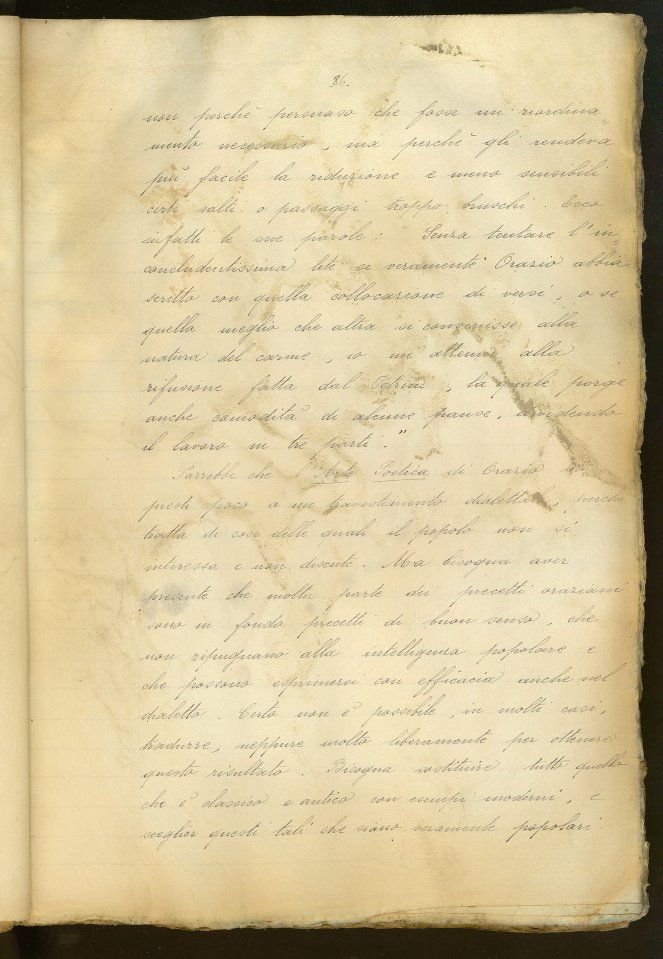 86.
non perchè persuaso che fosse un riordina=
mento necessario, ma perchè gli rendeva
più facile la riduzione e meno sensibili
certi salti o passaggi troppo bruschi. Ecco
infatti le sue parole: "Senza tentare l'in=
concludentissima lite se veramente Orazio abbia
scritto con quella collocazione di versi, o se
quella meglio che altra si convenisse alla
natura del carme, io mi attenni alla
rifusione fatta dal Petrini, la quale porge
anche comodità di alcune pause, dividendo
il lavoro in tre parti."
Parrebbe che l'Arte Poetica di Orazio si
presti poco a un travestimento dialettale, perchè
tratta di cose delle quali il popolo non si
interessa e non discute. Ma bisogna aver
presente che molta parte dei precetti oraziani
sono in fondo precetti di buon senso, che
non ripugnano alla intelligenza popolare e
che possono esprimersi con efficacia anche nel
dialetto. Certo non è possibile, in molti casi,
tradurre, neppure molto liberamente per ottenere
questo risultato. Bisogna sostituire tutto quello
che è classico e antico con esempi moderni, e
sceglier questi tali che siano veramente popolari